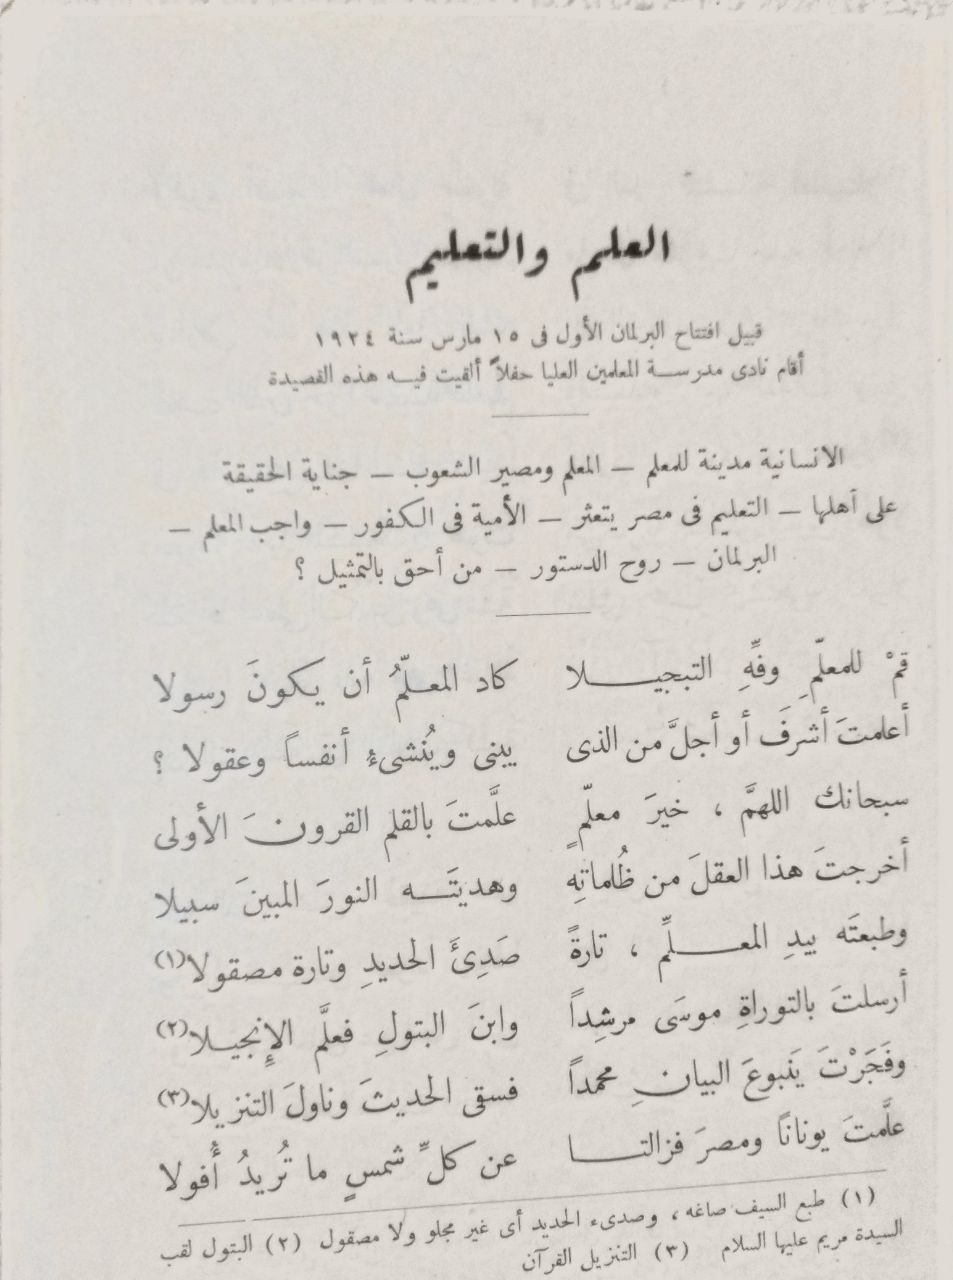 العلم والتعليم
قبيل افتتاح البرلمان الأول فى ١٥ مارس سنة ١٩٢٤
أقام نادى مدرسة المعلمين العليا حفلاً ألقيت فيه هذه القصيدة
الانسانية مدينة للمعلم — المعلم ومصير الشعوب — جناية الحقيقة
على أهلها — التعليم فى مصر يتعثر — الأمية فى الكفور — واجب المعلم —
البرلمان — روح الدستور — من أحق بالتمثيل ؟
قمْ للمعلّمِ وفِّهِ التبجيلا كاد المعلّمُ أن يكونَ رسولا
أعلمتَ أشرفَ أو أجلَّ من الذى يبنى ويُنْشىءُ أنفساً وعقولا ؟
سبحانك اللهمَّ ، خيرَ معلّمٍ علَّمتَ بالقلم القرونَ الأولى
أخرجتَ هذا العقلَ من ظُلماتِهِ وهديتَه النورَ المبينَ سبيلا
وطبعتَه بيدِ المعلِّم ، تارةً صَدِئَ الحديدِ وتارة مصقولا(١)
أرسلتَ بالتوراةِ موسَى مرشِداً وابنَ البتولِ فعلَّم الإِنجيلا(٢)
وفَجَرْتَ يَنبوعَ البيانِ محمداً فسقى الحديثَ وناولَ التنزيلا(٣)
علَّمتَ يوناناً ومصرَ فزالتا عن كلِّ شمسٍ ما تُريدُ أُفولا
(١) طبع السيف صاغه ، وصدىء الحديد أى غير مجلو ولا مصقول (٢) البتول لقب
السيدة مريم عليها السلام (٣) التنزيل القرآن